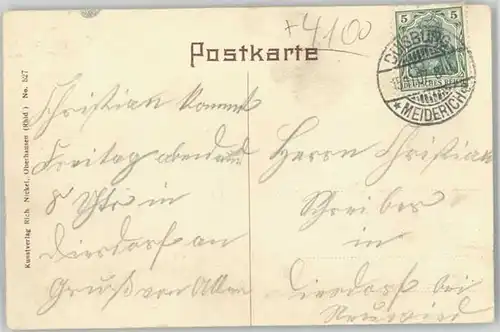 +4100
Postkarte
5 5
DUISBURG
* MEIDERICH *
DEUTSCHES REICH
Kunstverlag Rich. Nickel, Oberhausen (Rhld.) No. 527
Christian kommt
Freitag abend
8 Uhr in
Dierdorf an
Gruß von Allen
Herrn Christian
Schreiber
in
Dierdorf bei
Neuwied